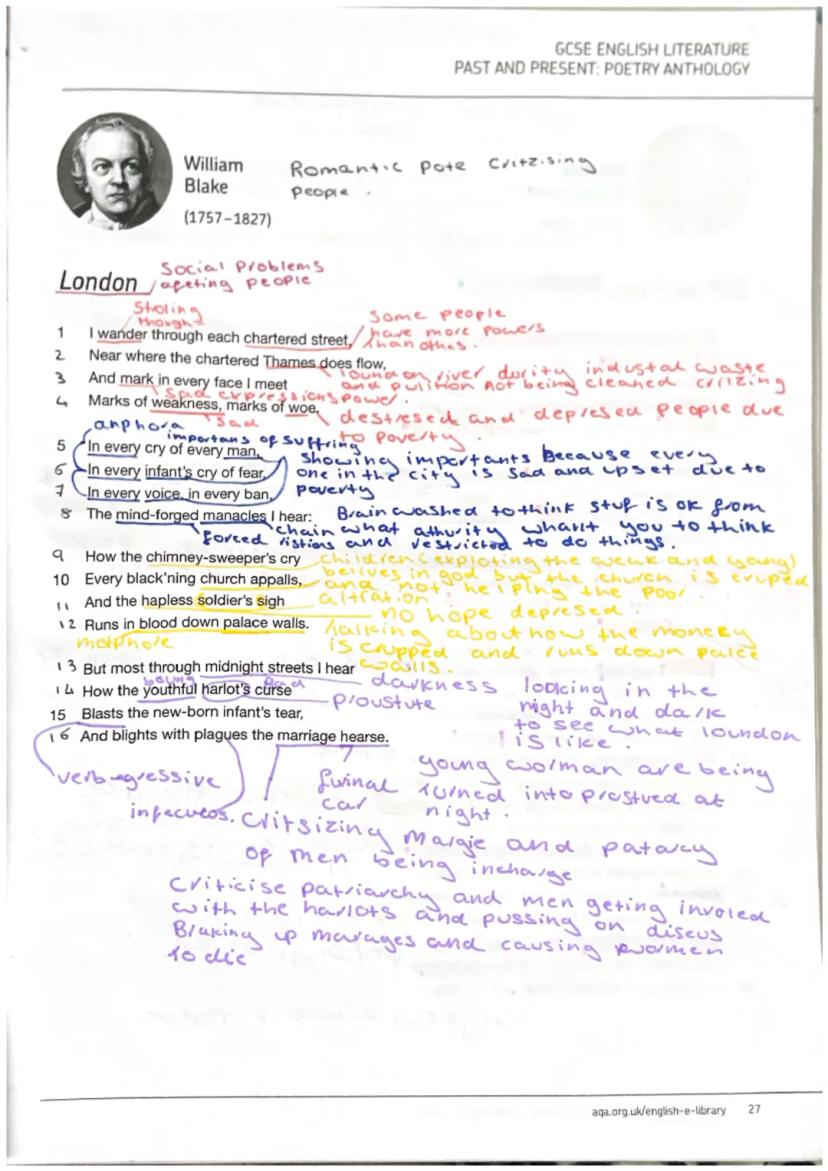 GCSE ENGLISH LITERATURE
PAST AND PRESENT: POETRY ANTHOLOGY
William
Blake
(1757–1827)
Romantic Pote Critzising
People .
London
Social Problems
afeting people
Stroling
thoright
Some people
have more Powers
than othes.
1 I wander through each chartered street,
2 Near where the chartered Thames does flow,
3 And mark in every face I meet
4 Marks of weakness, marks of woe.
London river durity industal waste
and pulition not being cleaned critizing
power.
Sad expressions
Sad
destresed and depresed people due
to poverty.
anphora
importans of suffring
5 In every cry of every man,
6 In every infant's cry of fear,
7 In every voice, in every ban,
8 The mind-forged manacles I hear:
showing importants because every
one in the city is sad and upset due to
poverty
Brain washed to think stuf is ok from
chain what athurity wharit you to think
forced ristions and restricted to do things.
9 How the chimney-sweeper's cry
10 Every black'ning church appalls,
11 And the hapless soldier's sigh
12 Runs in blood down palace walls.
children (exploting the weak and young)
belives in god but the church is cruped
and not helping the poor.
altration.
no hope depresed.
talking about how the moncey
is crupped and runs down palce
walls.
metphore
13 But most through midnight streets I hear
14 How the youthful harlot's curse
15 Blasts the new-born infant's tear,
16 And blights with plagues the marriage hearse.
being Bad
darkness
proustute
looking in the
night and dark
to see what loundon
is like.
verb-agressive
infecueos.
fuinal
car
young worman are being
turned into prostued at
night.
Critsizing Margie and patarcy
of men being incharge
Criticise patriarchy and men geting involed
with the harlots and pussing on diseus
Braking up marages and causing women
to die
aqa.org.uk/english-e-library 27